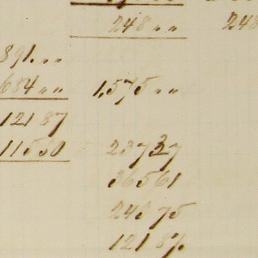 248 " "  248
891. " "
684 " "  1,575 " "
121 87
115 50  237 37
365 61
243 75
121 87